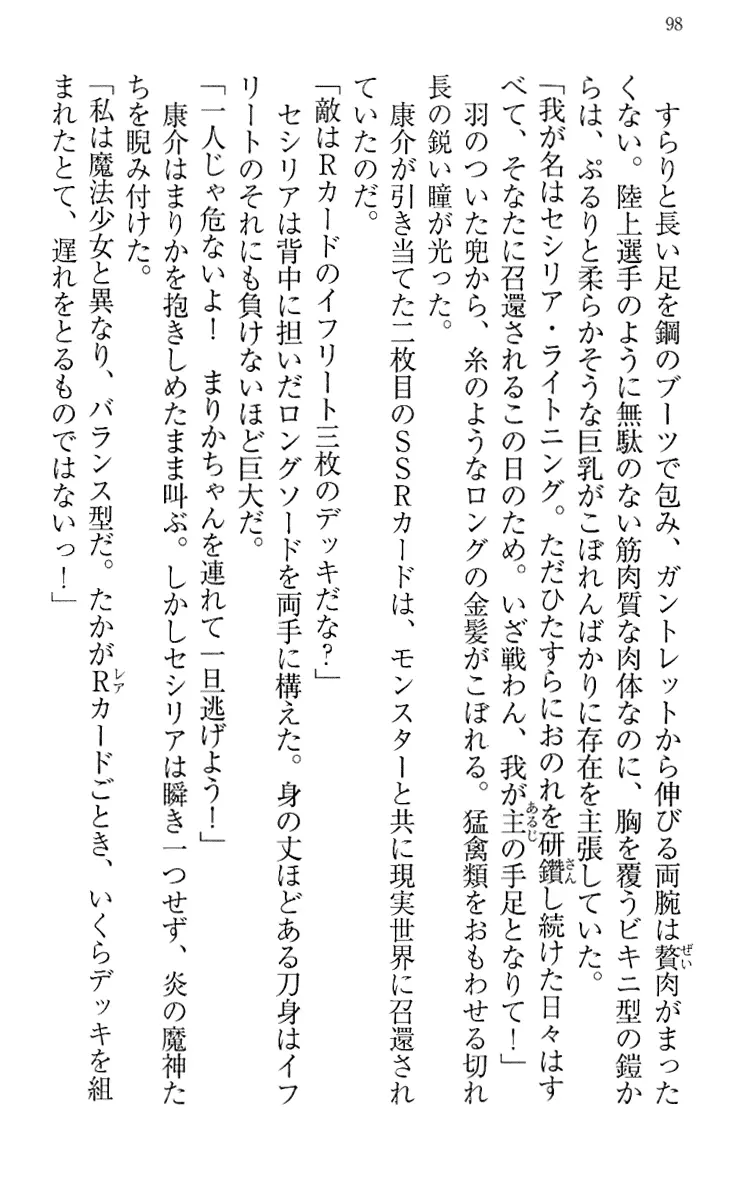 98
すらりと長い足を鋼のブーツで包み、ガントレットから伸びる両腕は贅肉がまった
くない。陸上選手のように無駄のない筋肉質な肉体なのに、胸を覆うビキニ型の鎧か
らは、ぷるりと柔らかそうな巨乳がこぼれんばかりに存在を主張していた。
「我が名はセシリア・ライトニング。ただひたすらにおのれを研鑽し続けた日々はす
べて、そなたに召還されるこの日のため。いざ戦わん、我が主の手足となりて！」
羽のついた兜から、糸のようなロングの金髪がこぼれる。猛禽類をおもわせる切れ
長の鋭い瞳が光った。
康介が引き当てた二枚目のＳＳＲカードは、モンスターと共に現実世界に召還され
ていたのだ。
「敵はＲカードのイフリート三枚のデッキだな？」
セシリアは背中に担いだロングソードを両手に構えた。身の丈ほどある刀身はイフ
リートのそれにも負けないほど巨大だ。
「一人じゃ危ないよ！　まりかちゃんを連れて一旦逃げよう！」
康介はまりかを抱きしめたまま叫ぶ。しかしセシリアは瞬き一つせず、炎の魔神た
ちを睨み付けた。
「私は魔法少女と異なり、バランス型だ。たかがＲカードごとき、いくらデッキを組
まれたとて、遅れをとるものではないっ！」